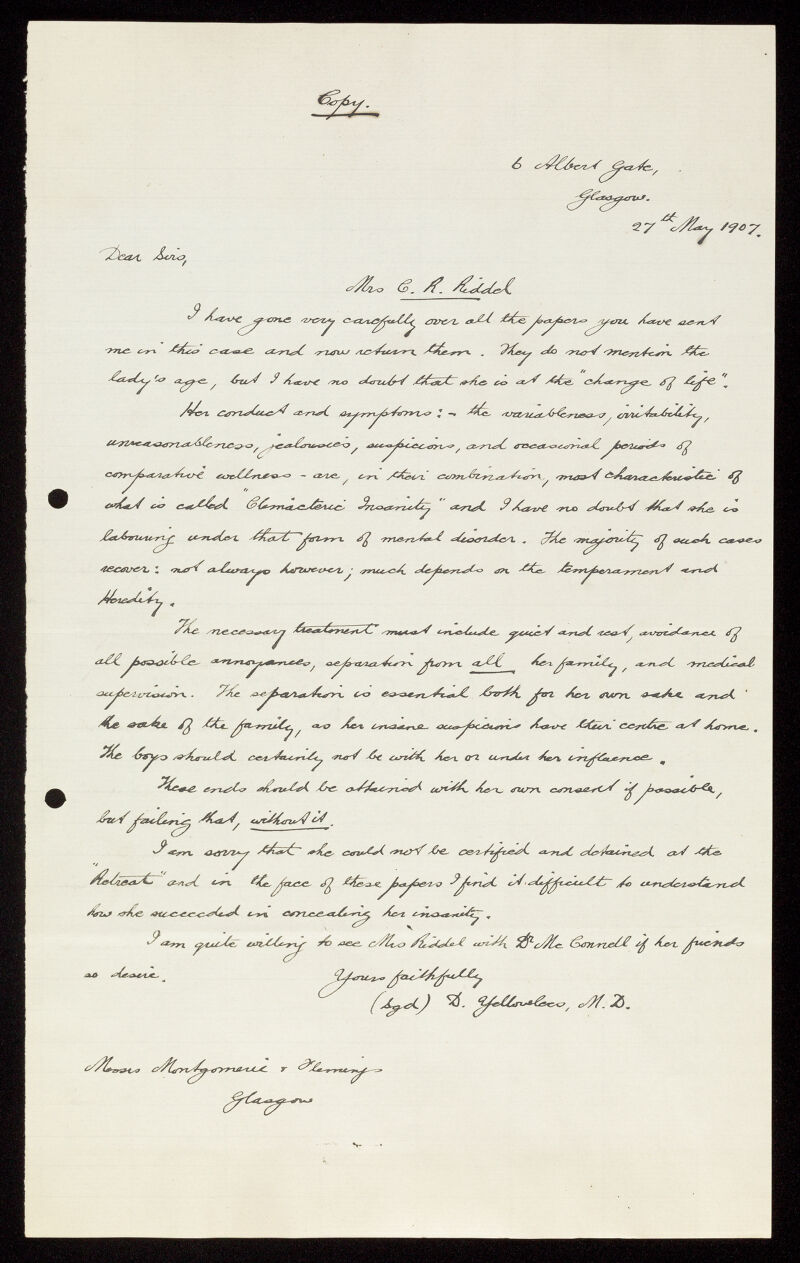 Copy.
6 Albert Gate,
Glasgow.
27th May 1907.
Dear Sirs,
Mrs C. R. Riddel
I have gone very carefully over all the papers you have sent
me in this case and now return them. They do not mention the
lady's age, but I have no doubt that she is at the "change of life".
Her conduct and symptoms:- the variableness, irritability,
unreasonableness, jealousies, suspicions, and occasional periods of
comparative wellness - are, in their combination, most characteristic of
what is called "Climacteric Insanity" and I have no doubt that she is
labouring under that form of mental disorder. The majority of such cases
recover: not always however; much depends on the temperament and
Heredity.
The necessary treatment must include quiet and rest, avoidance of
all possible annoyances, separation from all her family, and medical
supervision. The separation is essential both for her own sake and
the sake of the family, as her insane suspicions have their centre at home.
The boys should certainly not be with her or under her influence.
These ends should be attained with her own consent if possible,
but failing that, without it.
I am sorry that she could not be certified and detained at the
"Retreat" and in the face of these papers I find it difficult to understand
how she succeeded in concealing her insanity.
I am quite willing to see Mrs Riddel with Dr McConnell if her friends
so desire.
Yours faithfully
(Sgd) D. Yellowlees, M.D.
Messrs Montgomerie & Flemings
Glasgow